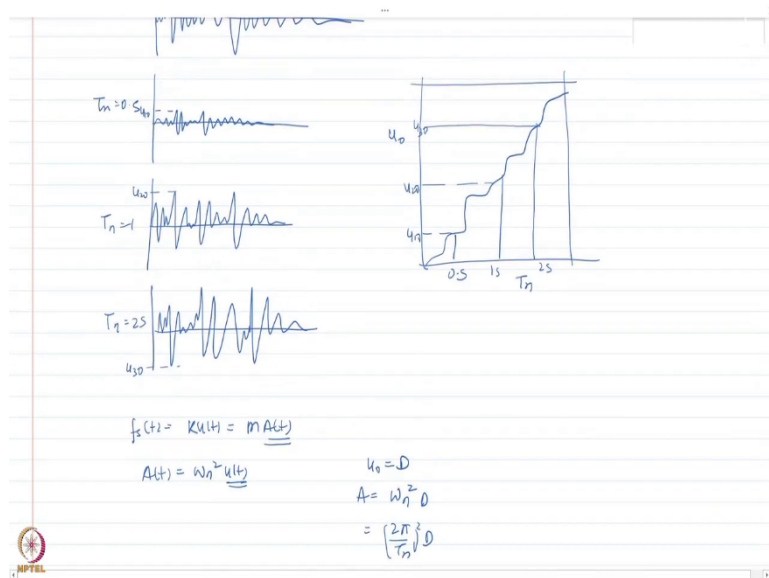 Tn=0.5
u10
u20
Tn=1
Tn=2s
u30
u0
u30
u20
u10
0.5
1s
2s
Tn
fs(t)= Ku(t) = mA(t)
A(t) = ωn² u(t)
u0 = D
A = ωn² D
= (2π/Tn)² D
NPTEL